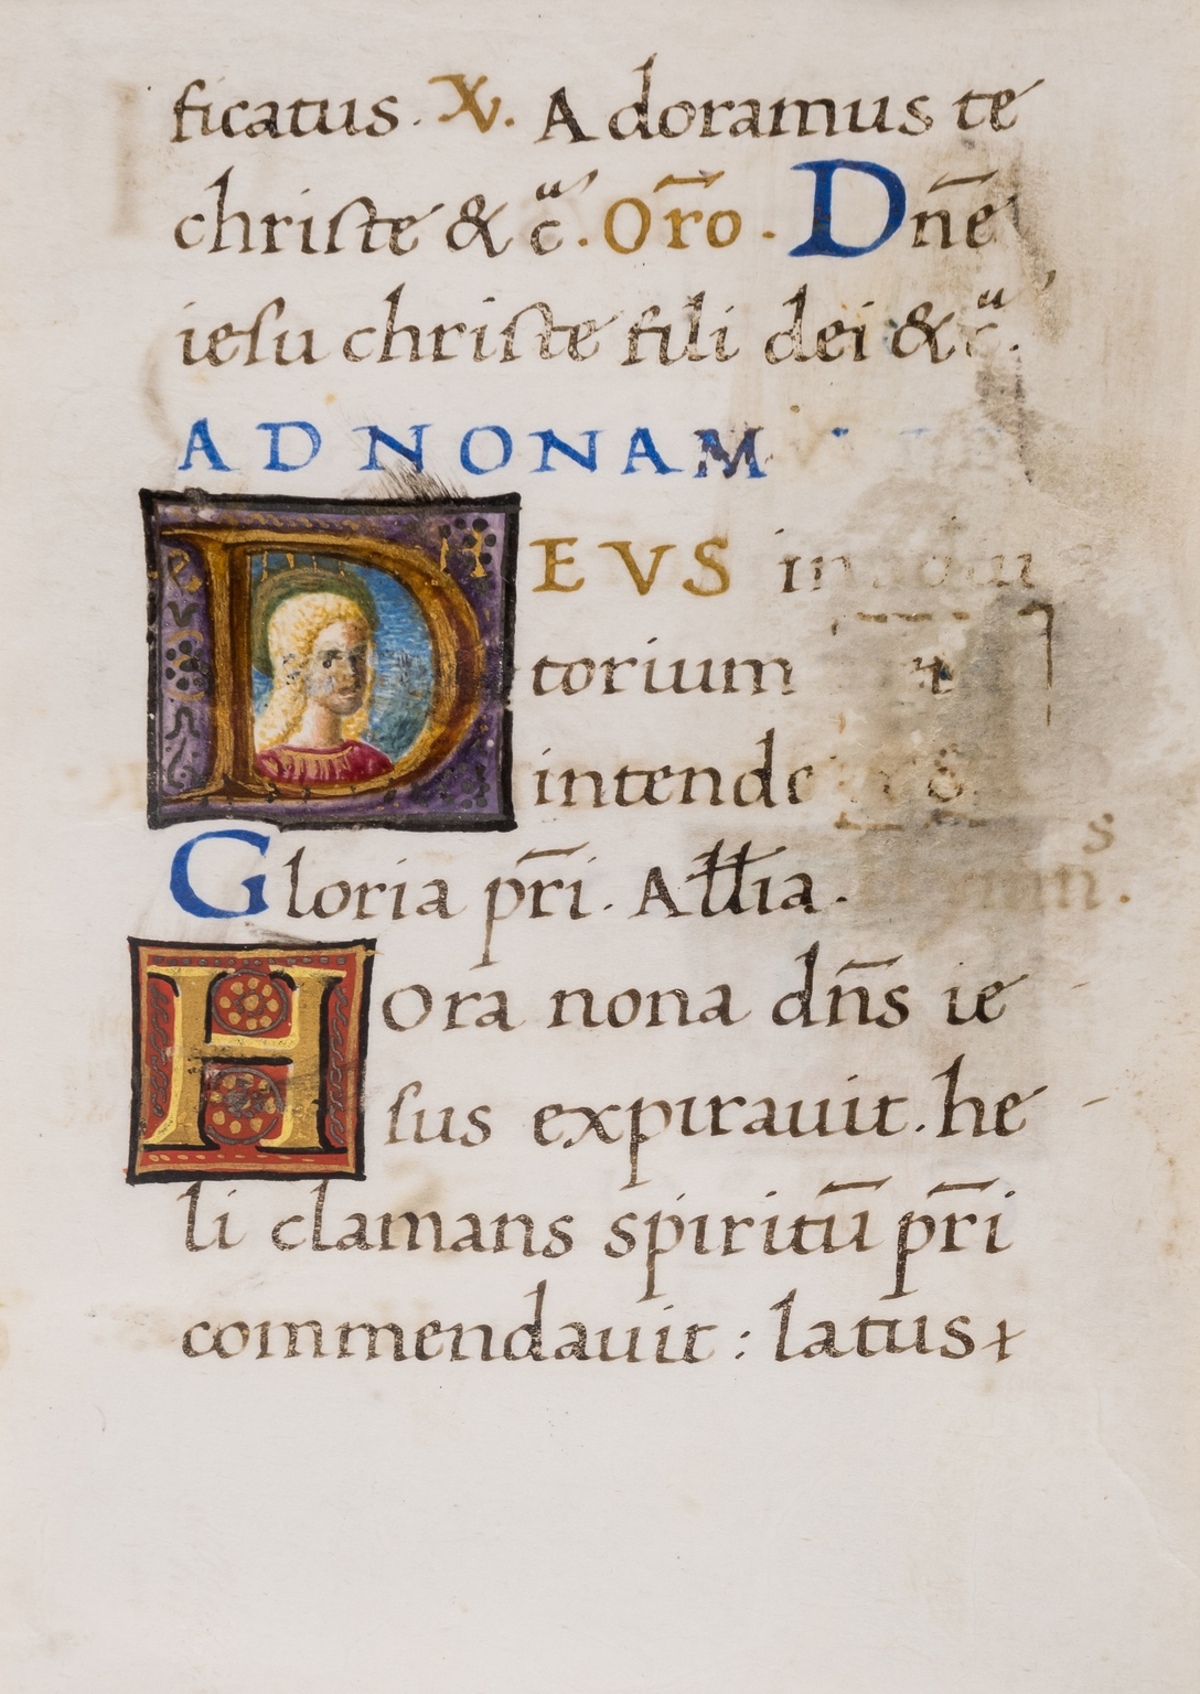 ficatus. V. Adoramus te
christe & cͣ. Oro̅. Dn̅e
iesu christe fili dei & cͣ.
AD NONAM
DEVS in
torium
intende
Gloria pr̅i. Allia.
Hora nona dn̅s ie
sus expirauit. he
li clamans spiritu̅ pr̅i
commendauit: latus